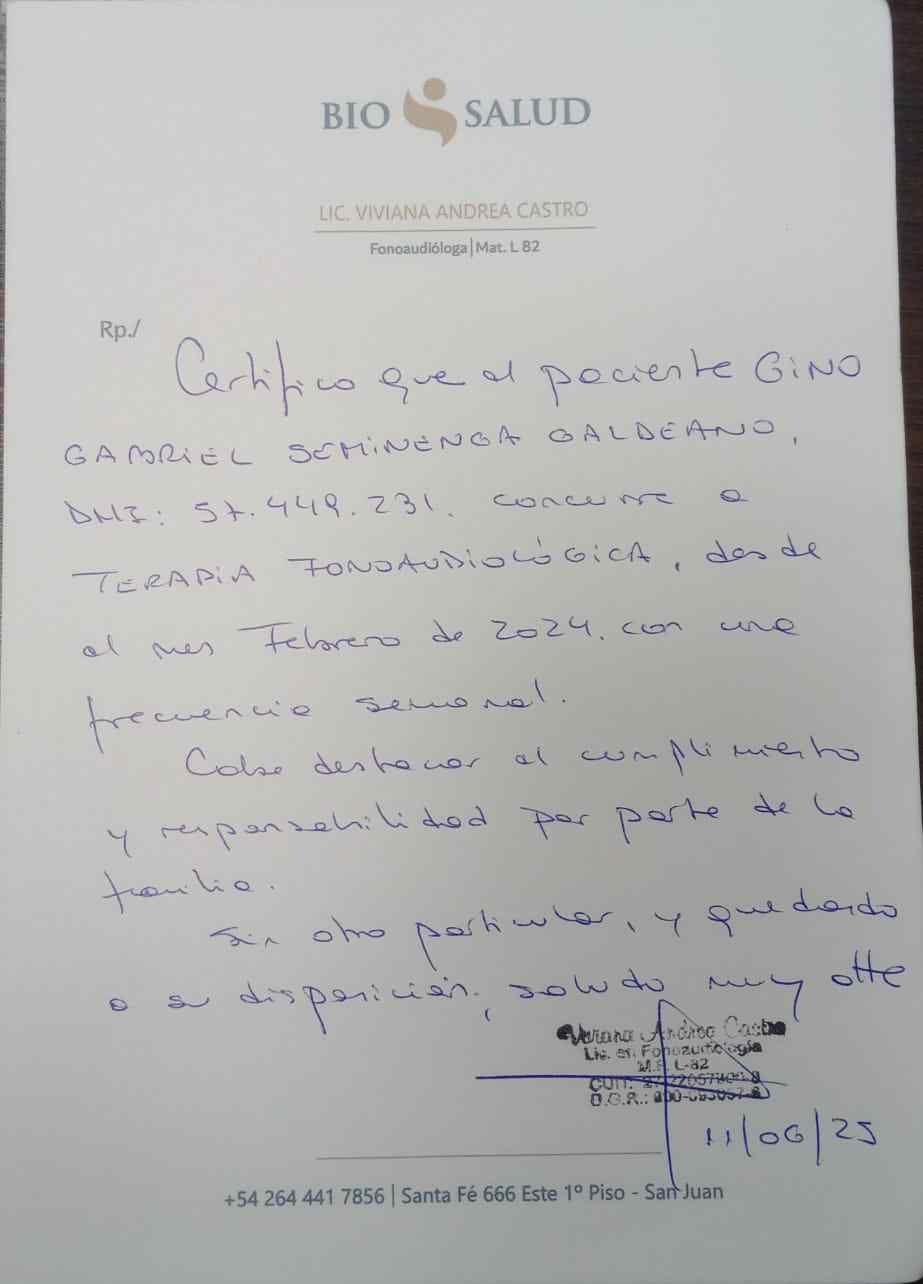 BIO SALUD
LIC. VIVIANA ANDREA CASTRO
Fonoaudióloga | Mat. L 82
Rp./
Certifico que el paciente GINO
GABRIEL SEMINENGA GALDEANO,
DNI: 57.449.231. concurre a
TERAPIA FONOAUDIOLÓGICA, desde
el mes Febrero de 2024. con una
frecuencia semanal.
Cabe destacar el cumplimiento
y responsabilidad por parte de la
familia.
Sin otro particular, y quedando
a su disposición, saludo muy atte
Viviana Andrea Castro
Lic. en Fonoaudiología
M.P. L-82
CUIT:
O.G.R.:
11/06/25
+54 264 441 7856 | Santa Fé 666 Este 1º Piso - San Juan